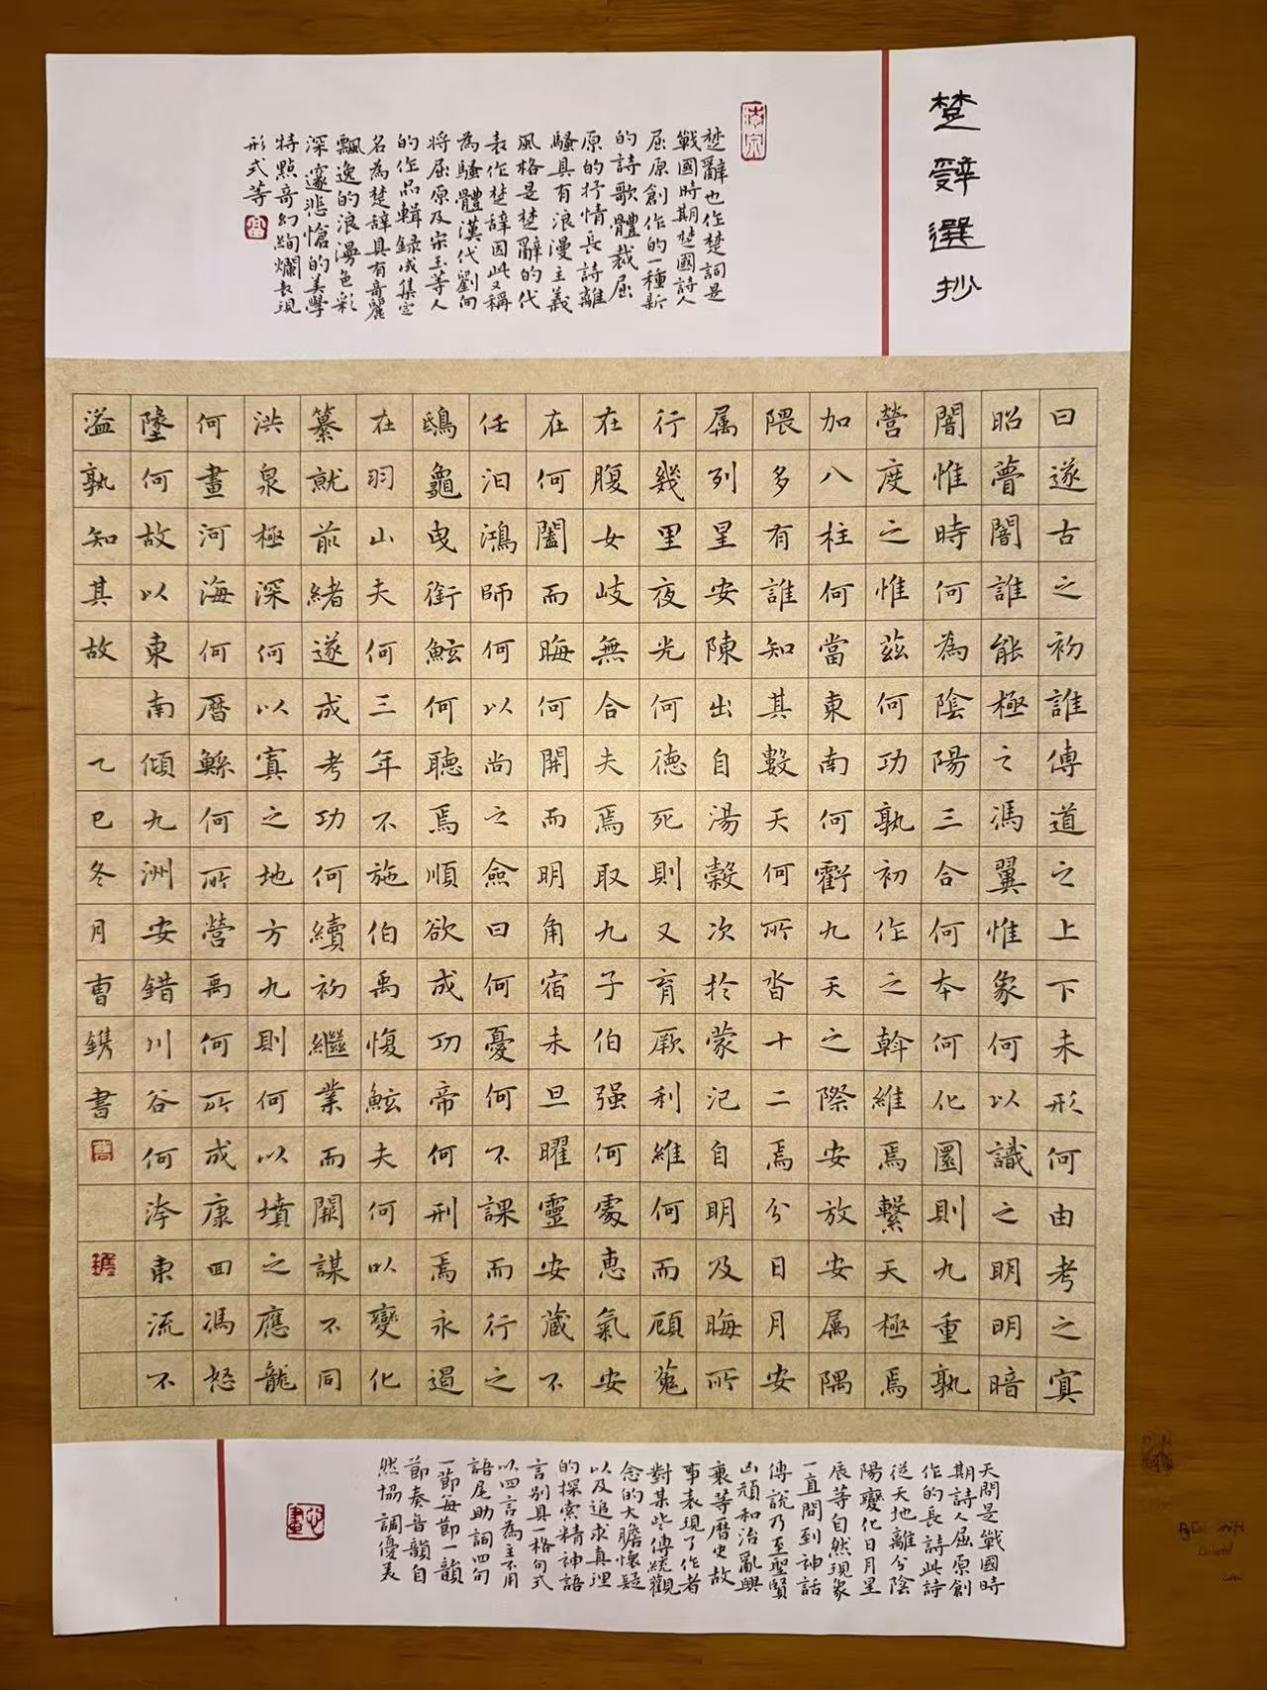 楚辭選抄
楚辭也作楚詞是
戰國時期楚國詩人
屈原創作的一種新
的詩歌體裁屈
原的抒情長詩離
騷具有浪漫主義
風格是楚辭的代
表作楚辞因此又稱
為騷體漢代劉向
將屈原及宋玉等人
的作品輯録成集定
名為楚辞具有奇麗
飄逸的浪漫色彩
深邃悲愴的美學
特點奇幻絢爛表現
形式等
曰遂古之初誰傳道之上下未形何由考之冥
昭瞢闇誰能極之馮翼惟象何以識之明明暗
闇惟時何為陰陽三合何本何化圜則九重孰
營度之惟兹何功孰初作之斡維焉繫天極焉
加八柱何當東南何虧九天之際安放安属隅
隈多有誰知其數天何所沓十二焉分日月安
属列星安陳出自湯穀次於蒙汜自明及晦所
行幾里夜光何德死則又育厥利維何而顧菟
在腹女岐無合夫焉取九子伯强何處惠氣安
在何闔而晦何開而明角宿未旦曜靈安藏不
任汩鴻師何以尚之僉曰何憂何不課而行之
鴟龜曳銜鮌何聽焉順欲成功帝何刑焉永遏
在羽山夫何三年不施伯禹愎鮌夫何以變化
纂就前緒遂成考功何續初繼業而闕謀不同
洪泉極深何以寘之地方九則何以墳之應龍
何畫河海何曆鯀何所營禹何所成康回馮怒
墜何故以東南傾九洲安錯川谷何洿東流不
溢孰知其故
乙巳冬月曹鐫書
天問是戰國時
期詩人屈原創
作的長詩此詩
從天地離分陰
陽變化日月星
辰等自然現象
一直問到神話
傳說乃至聖賢
凶頑和治亂興
衰等曆史故
事表現了作者
對某些傳統觀
念的大膽懷疑
以及追求真理
的探索精神語
言别具一格句式
以四言為主不用
語尾助詞四句
一節每節一韻
節奏音韻自
然協調優美